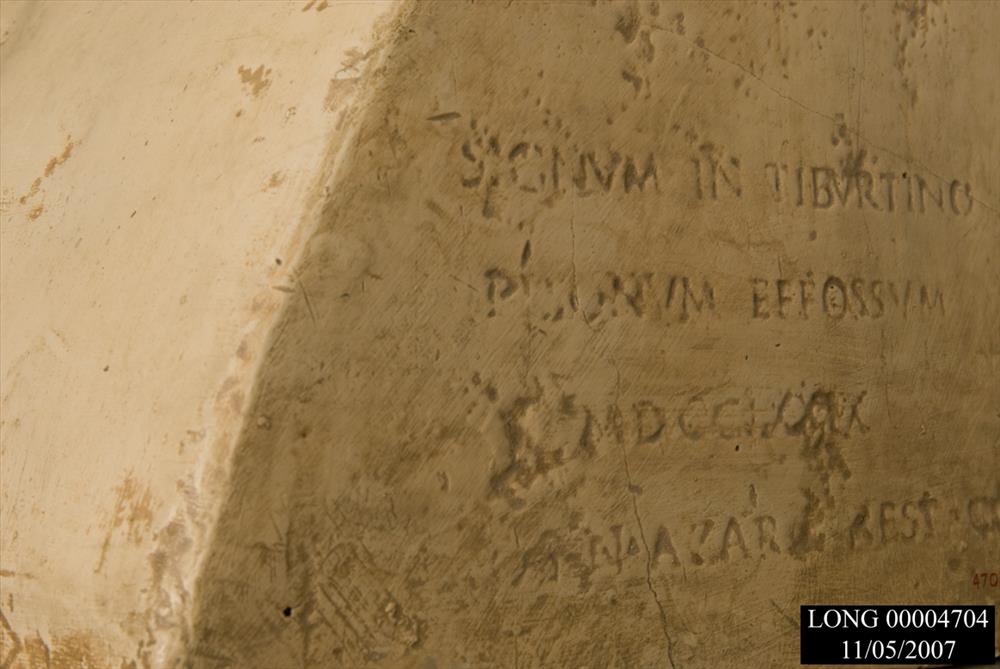 SIGNVM IN TIBVRTINO
PISONVM EFFOSSVM
MDCCLXXIX
N · AZARA REST · C
470
LONG 00004704
11/05/2007